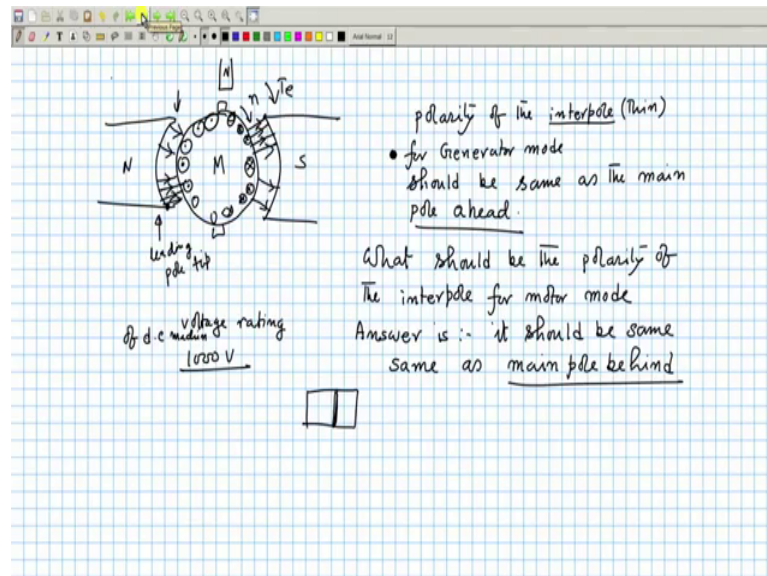 Previous Page
Arial Normal 12
N
n Te
N M S
leading
pole tip
polarity of the interpole (Thin)
• for Generator mode
should be same as the main
pole ahead.
What should be the polarity of
the interpole for motor mode
Answer is :- it should be same
same as main pole behind
voltage rating
of d.c